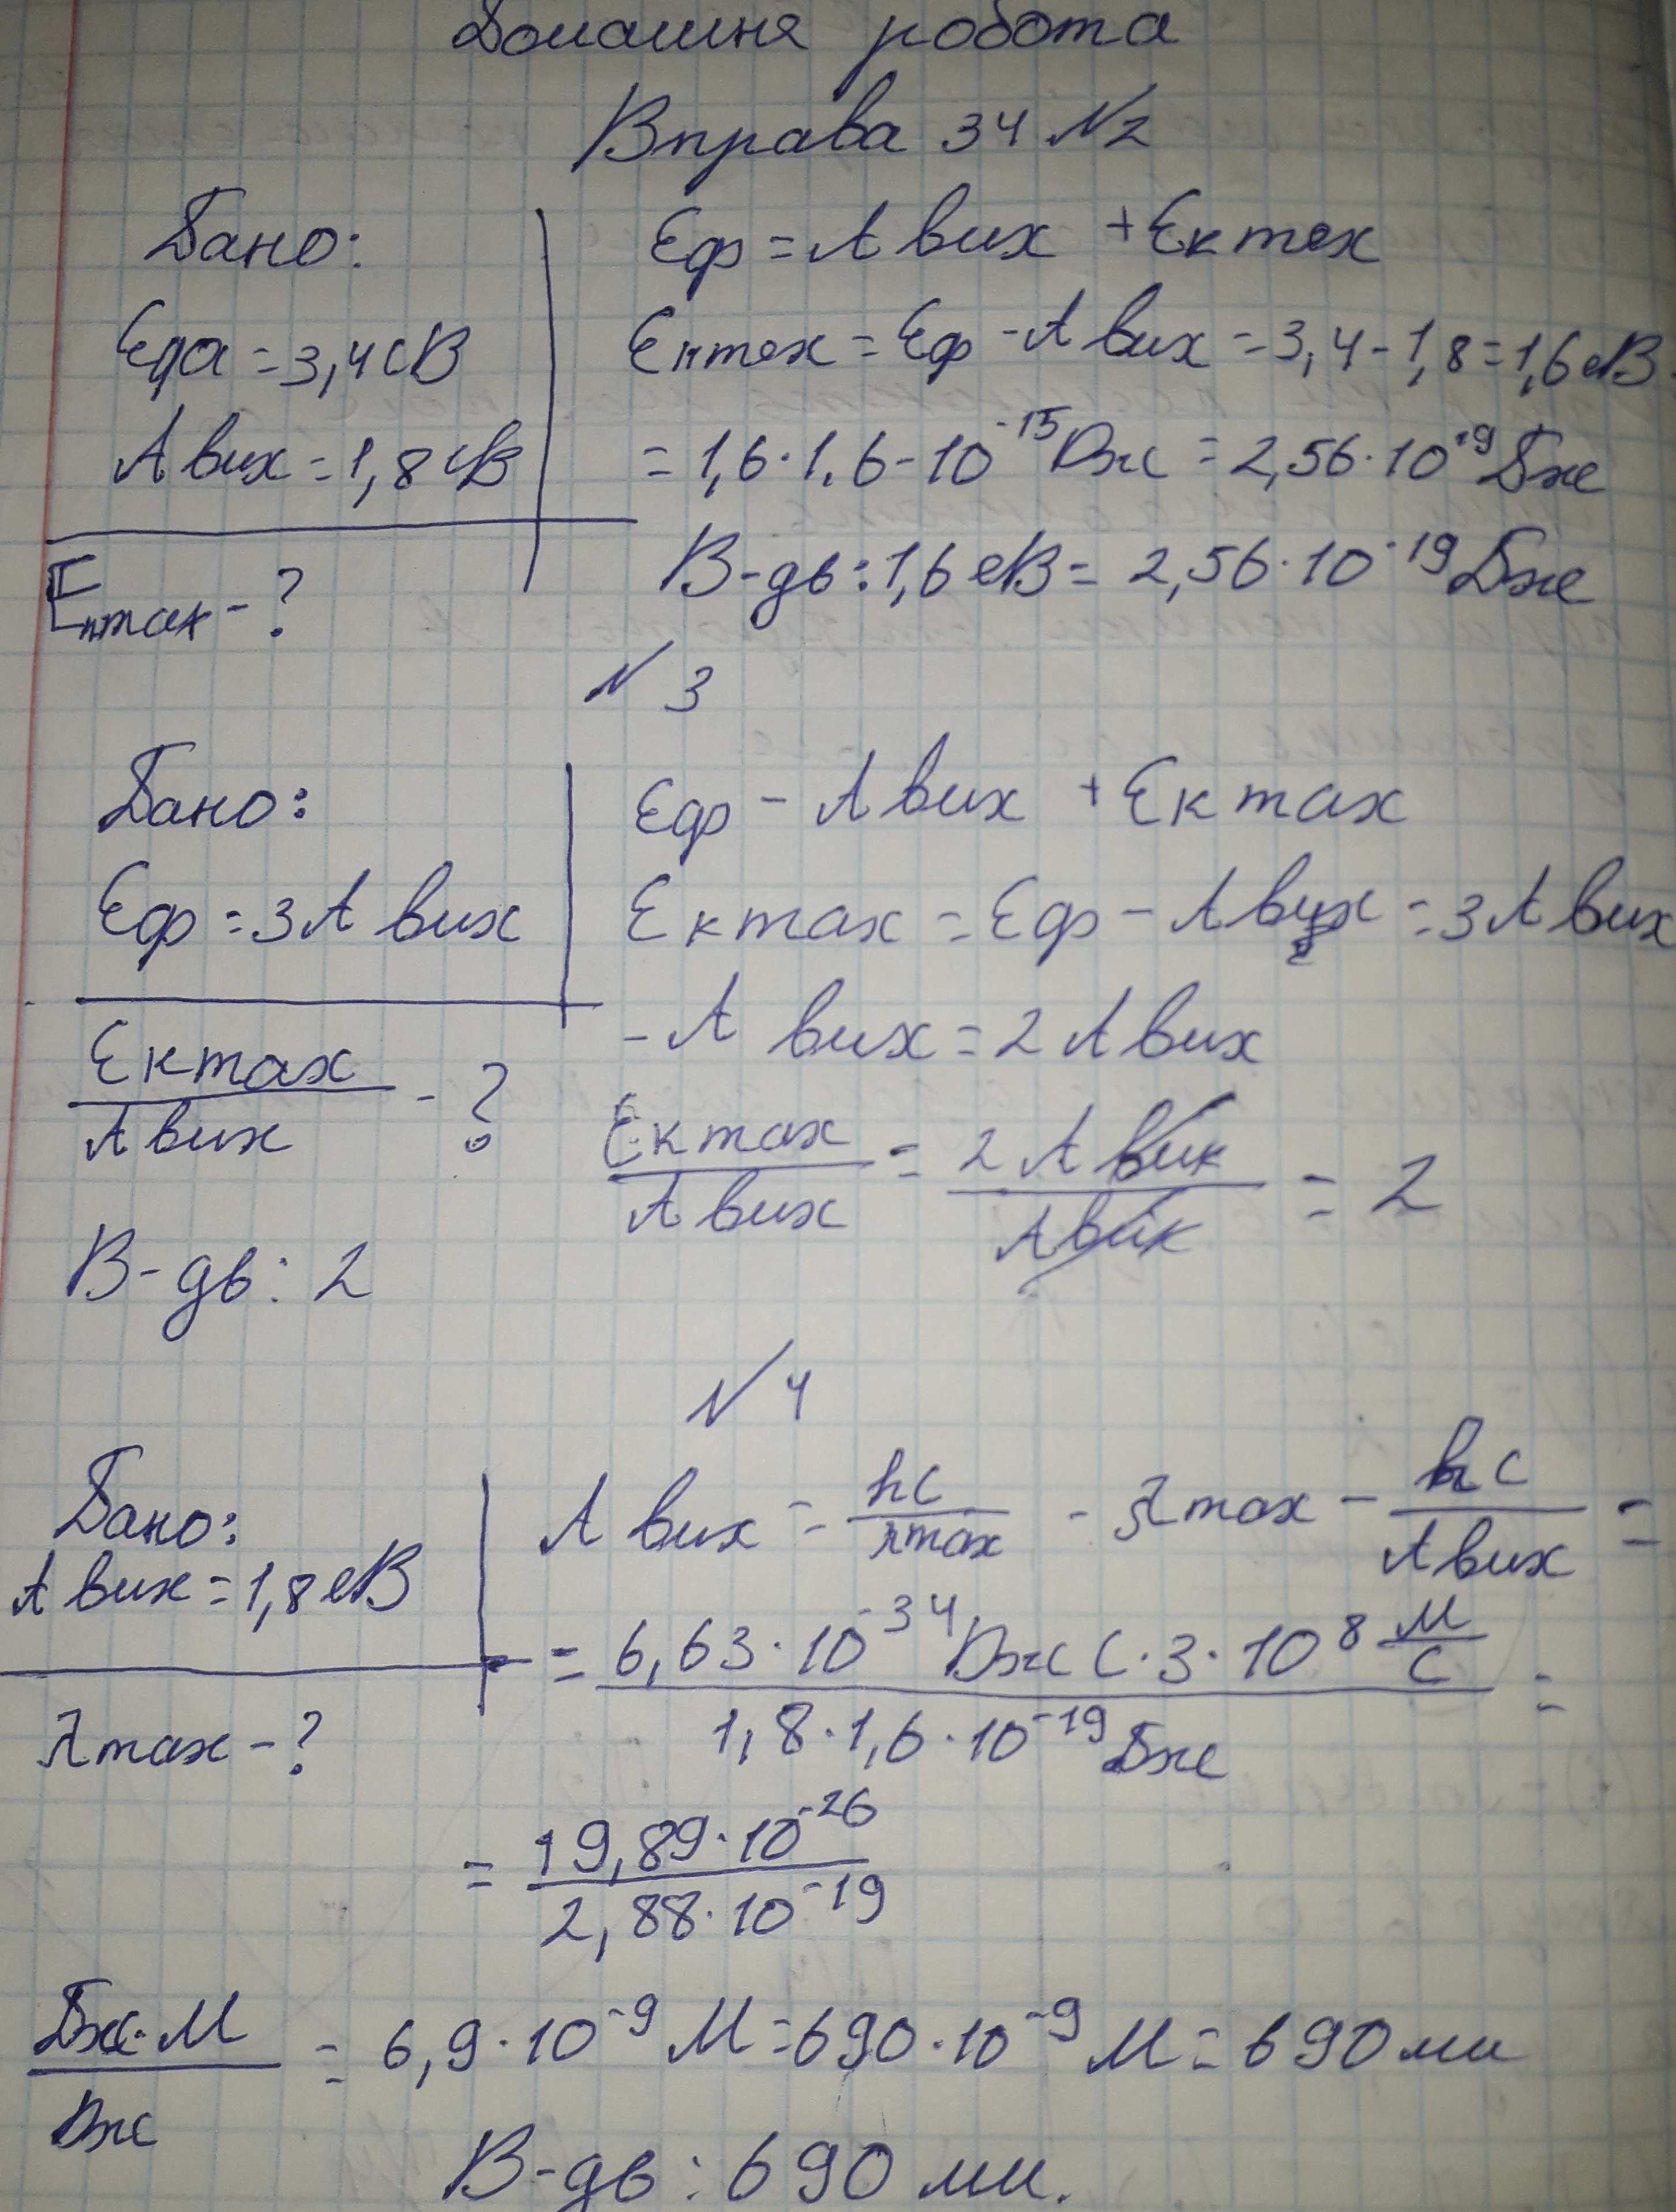 Домашня робота
Вправа 34 №2
Дано:
Eф = 3,4 еВ
A вих = 1,8 еВ
Eкmax - ?
Eф = A вих + Eк max
Eкmax = Eф - A вих = 3,4 - 1,8 = 1,6 еВ
= 1,6 · 1,6 - 10⁻¹⁵ Дж = 2,56 · 10⁻¹⁹ Дж
В-дь: 1,6 еВ = 2,56 · 10⁻¹⁹ Дж
№ 3
Дано:
Eф = 3A вих
Eк max / A вих - ?
В-дь: 2
Eф - A вих + Eк max
Eк max = Eф - A вих = 3A вих
- A вих = 2 A вих
Eк max / A вих = 2 A вик / A вик = 2
№ 4
Дано:
A вих = 1,8 еВ
λ max - ?
A вих = hc / λmax - λ max - hc / A вих =
= 6,63 · 10⁻³⁴ Дж с · 3 · 10⁸ м/с / 1,8 · 1,6 · 10⁻¹⁹ Дж =
= 19,89 · 10⁻²⁶ / 2,88 · 10⁻¹⁹
Дж · М / Дж = 6,9 · 10⁻⁹ М = 690 · 10⁻⁹ М = 690 мм
В-дь: 690 мм.